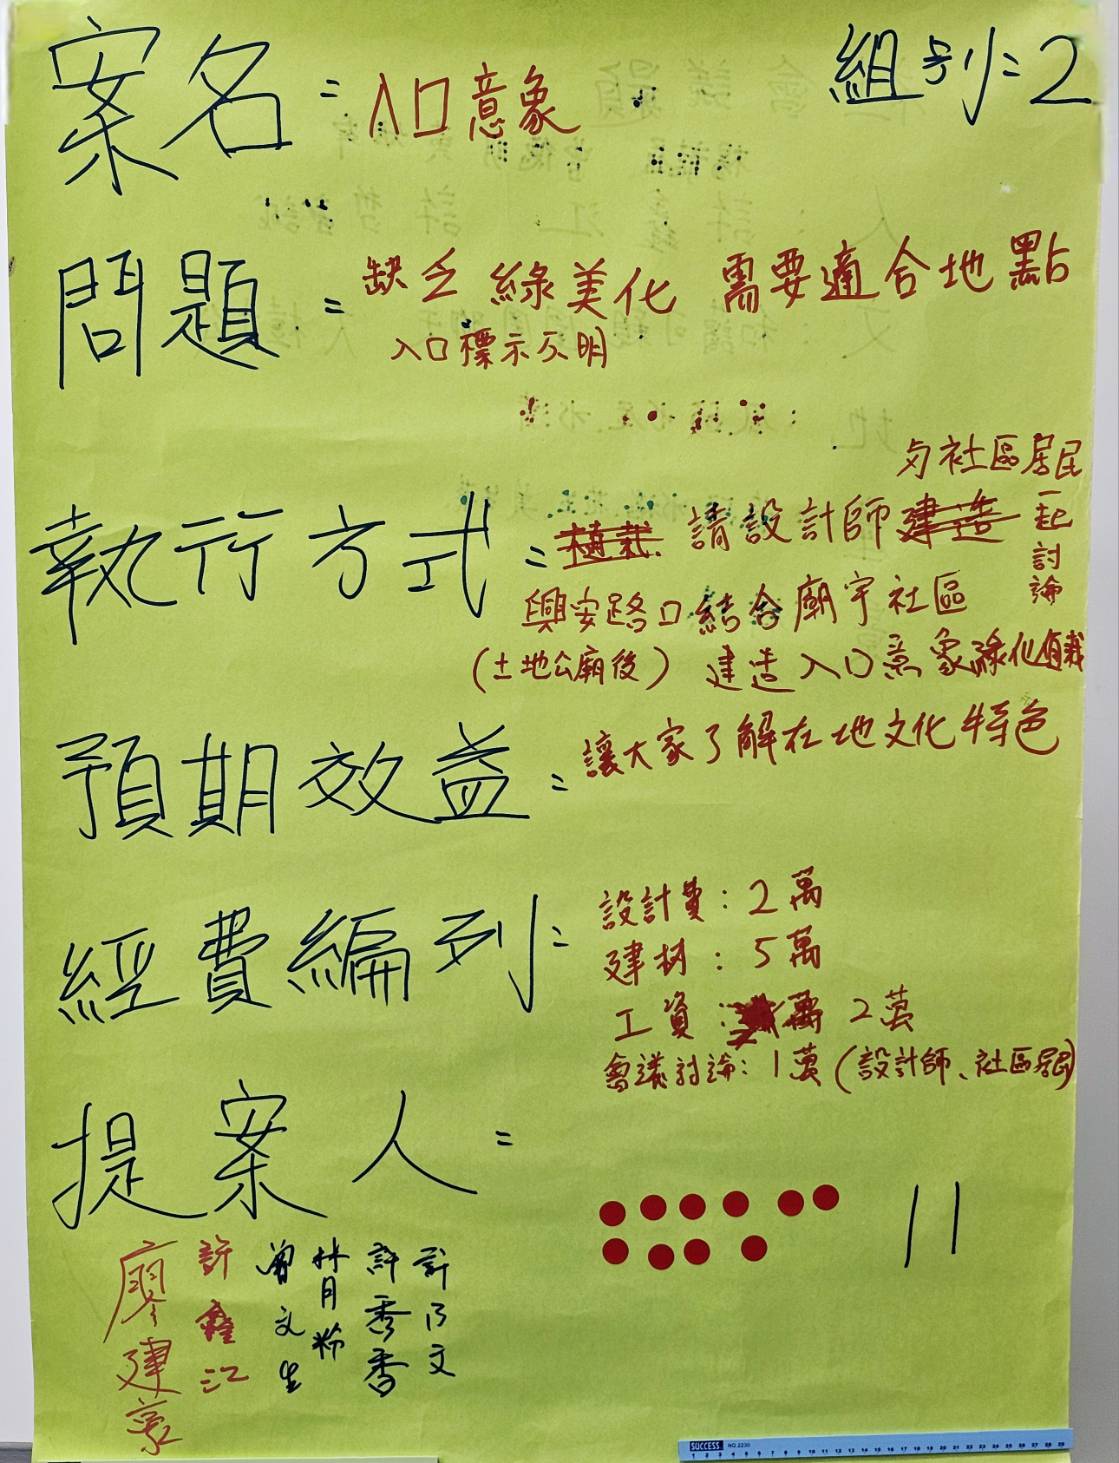 組別：2
案名：入口意象
問題：缺乏綠美化 需要適合地點
入口標示不明
執行方式：植栽. 請設計師建造
与社區居民
一起討論
興安路口結合廟宇社區
(土地公廟後) 建造入口意象綠化植栽
預期效益：讓大家了解在地文化特色
經費編列：
設計費：2萬
建材：5萬
工資：萬 2萬
會議討論：1萬(設計師、社區居民)
提案人：
11
廖建蒙
許鑫江
曾文生
林月粉
許秀香
許乃文
SUCCESS NO.2230